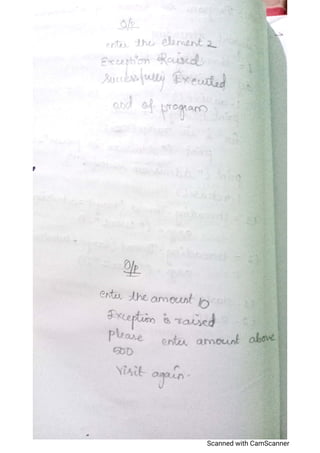 O/P
enter the element 2
Exception Raised
Successfully Executed
end of program
O/p
enter the amount 10
Exception is raised
please enter amount above
500
Visit again.
Scanned with CamScanner